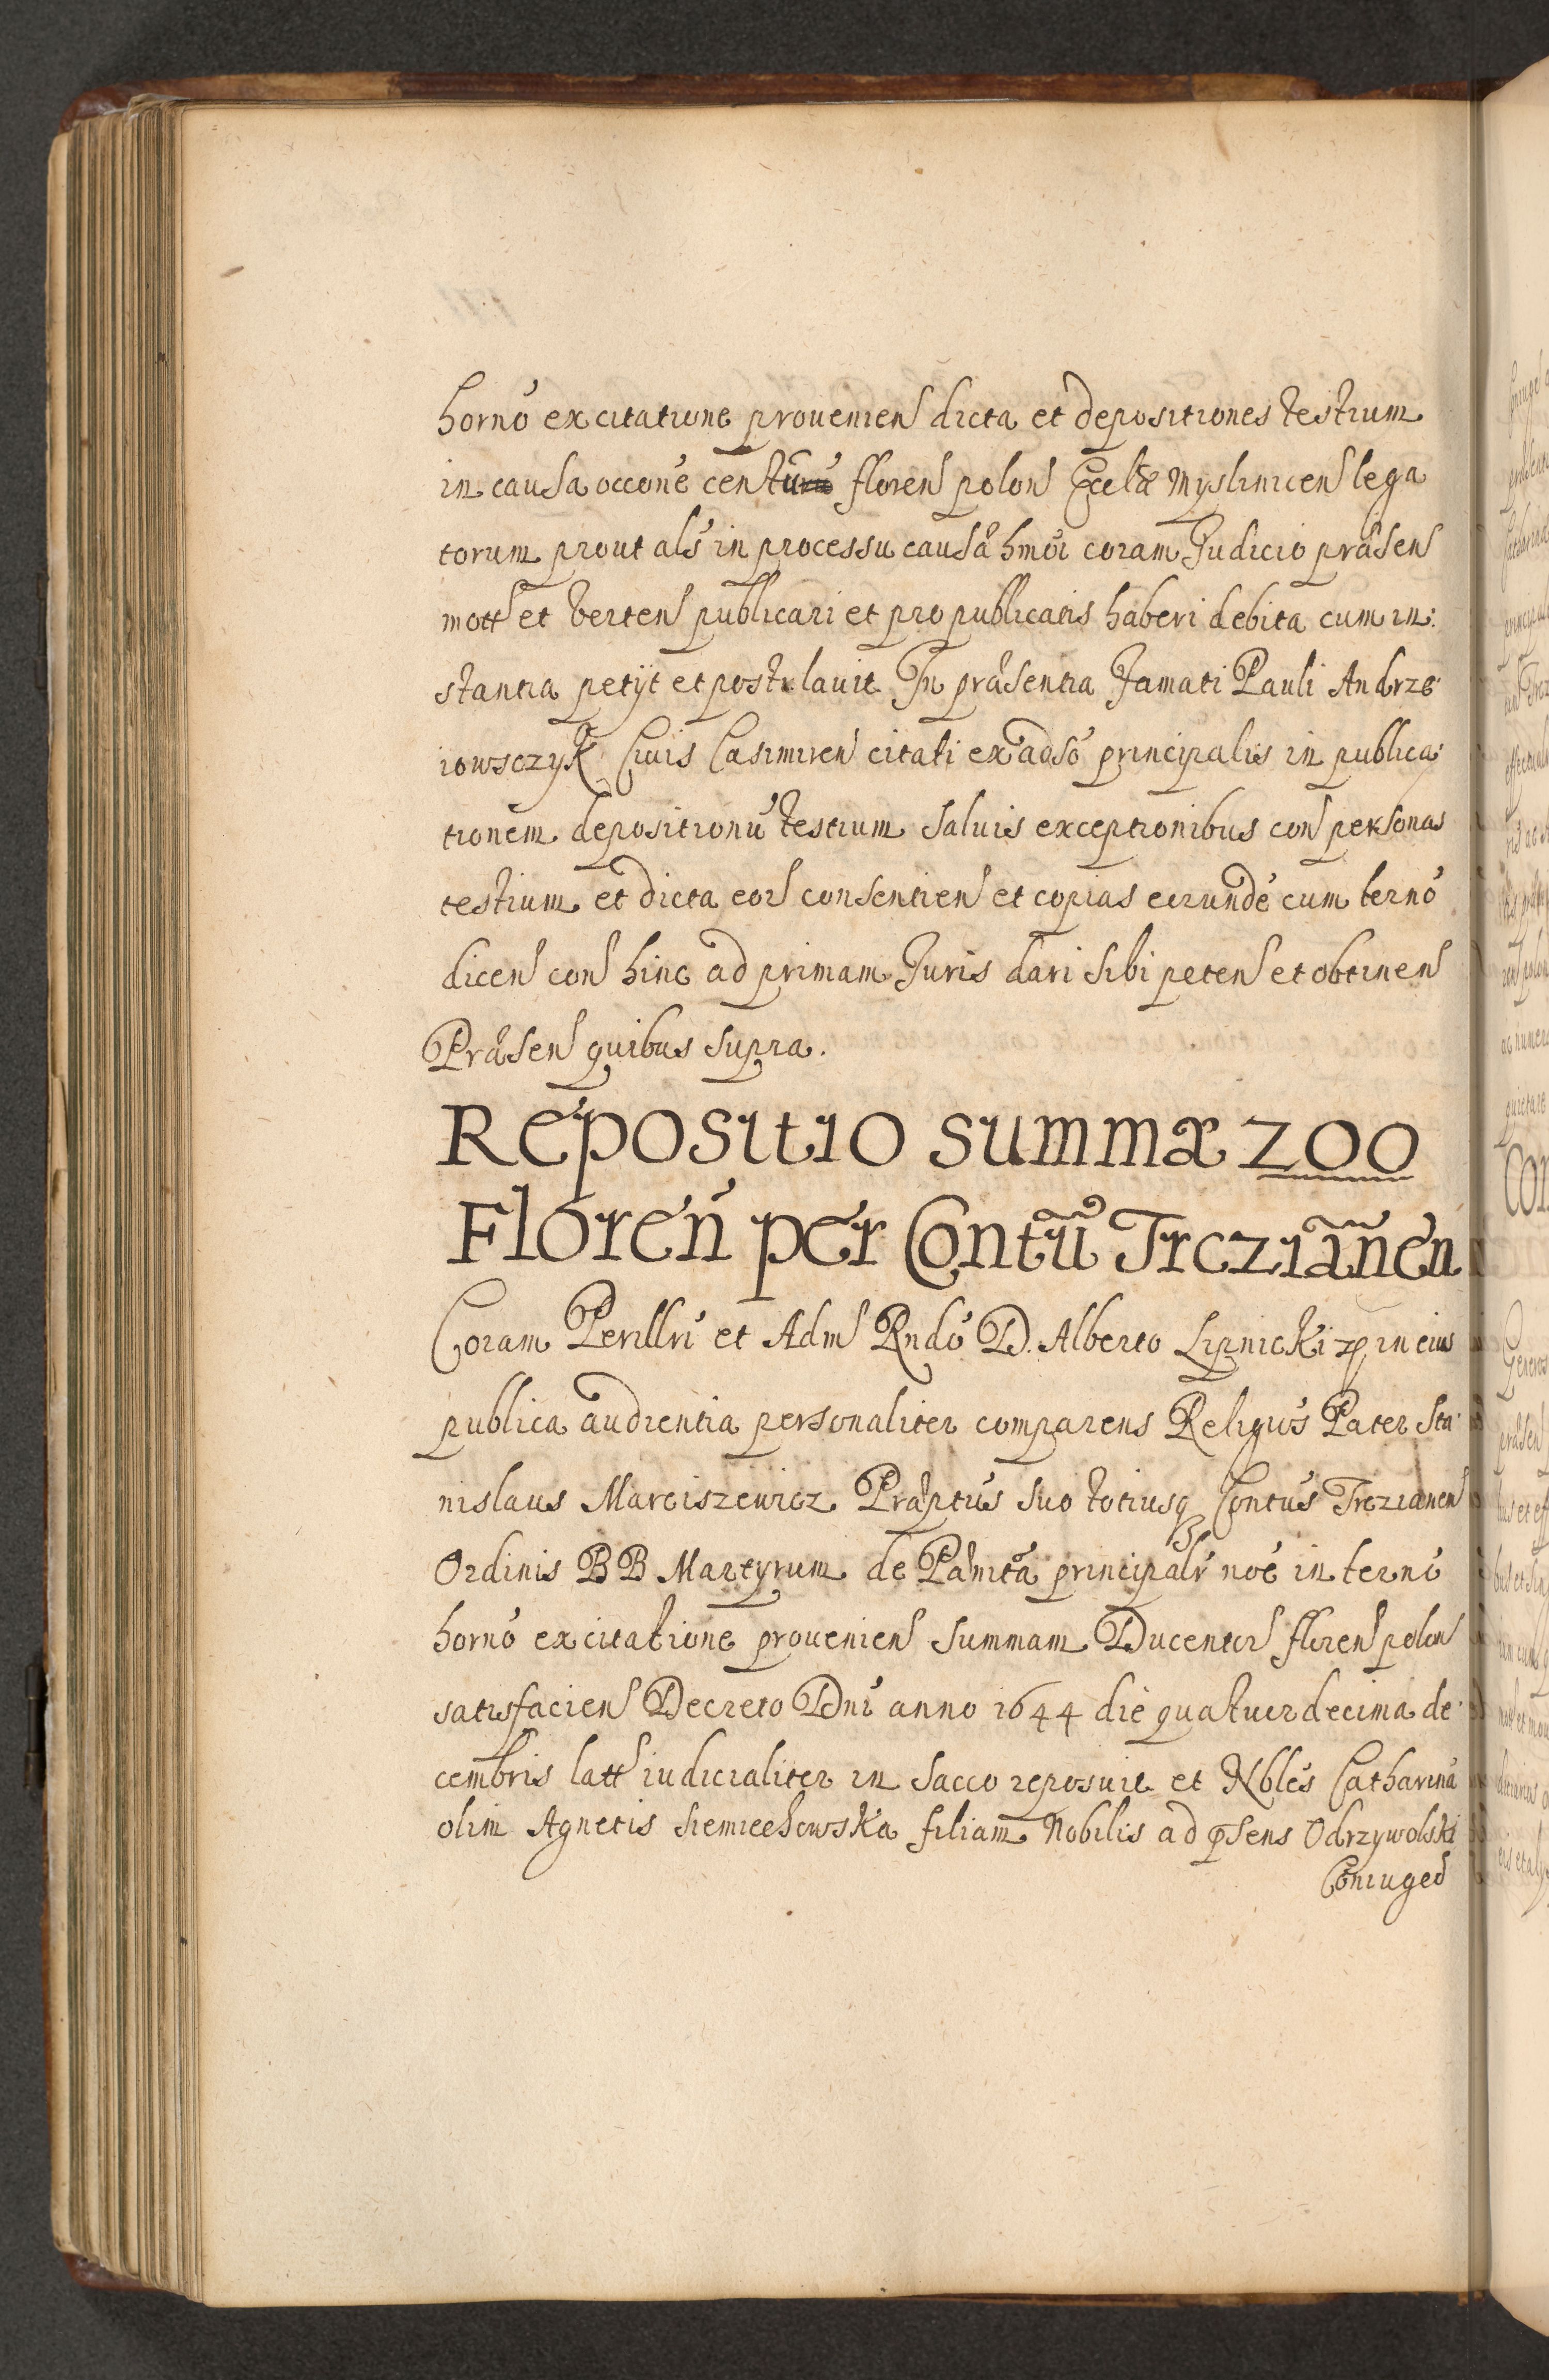 horno excitatione prouenien dicta et depositiones testium
in causa occone centum floren polon Ecclæ Myslimicen lega
torum prout als in processu causæ hmoi coram Judicio præsen
mott et verten publicari et pro publicatis haberi debita cum in:
stantia petijt et postulauit In præsentia Famati Pauli Andrze
iowsczyk Ciuis Casimiren citati ex adso principalis in publica
tionem depositionu testium saluis exceptionibus con personas
testium et dicta eor consentien et copias eorunde cum terno
dicen con hinc ad primam Juris dari sibi peten et obtinen
Præsen quibus supra.
Repositio summæ 200
Floren per Contu Trcziānen
Coram Perillri et Adm Rndo D. Alberto Lipnicki in eius
publica audientia personaliter comparens Religios Pater Sta
nislaus Marciszewicz Præptus suo totiusq Contus Trczianen
Ordinis BB Martyrum de Pænita principalr noe in terno
horno excitatione prouenien summam Ducentor floren polon
satisfacien Decreto Dni anno 1644 die quatuor decima de
cembris latt iudicialiter in sacco reposuit et Nbles Catharina
olim Agnetis Siemiechowska filiam Nobilis ad psens Odrzywolski
Coniuged